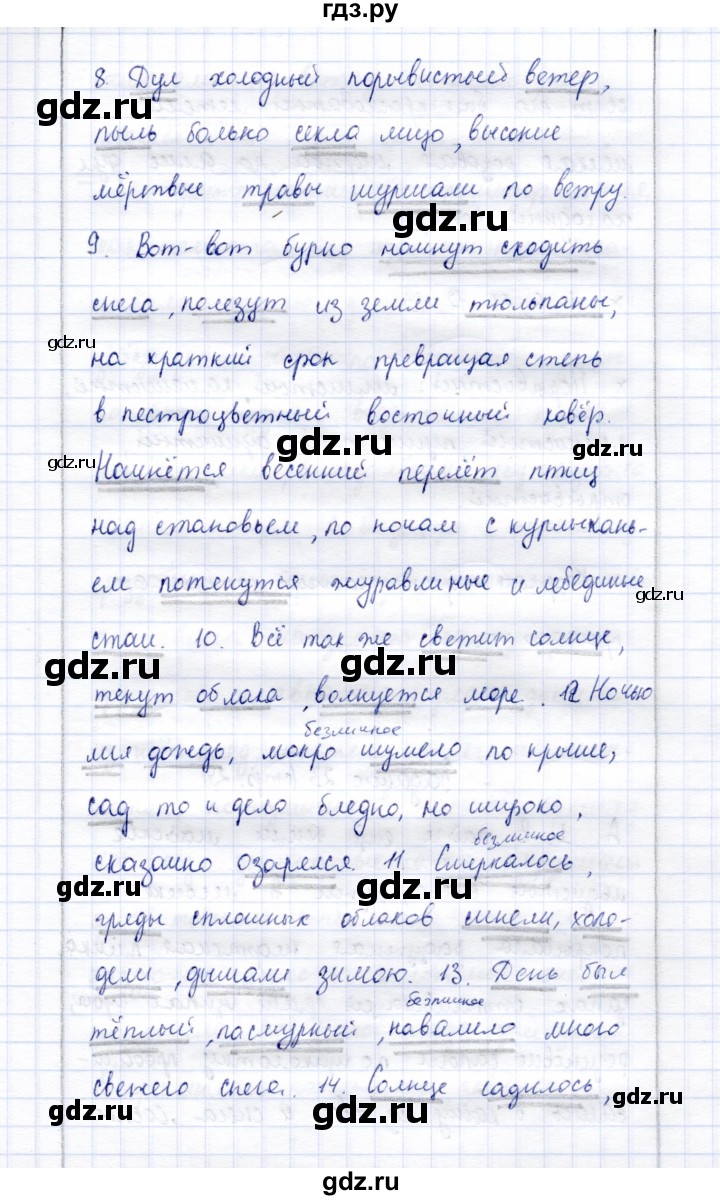 гдз.ру
8. Дул холодный порывистый ветер,
пыль больно секла лицо, высокие
мёртвые травы шуршали по ветру.
gdz.ru
9. Вот-вот бурно начнут сходить
снега, полезут из земли тюльпаны,
gdz.ru
на краткий срок превращая степь
в пестроцветный восточный ковёр.
gdz.ru
gdz.ru
Начнётся весенний перелёт птиц
над становьем, по ночам с курлыкань-
ем потянутся журавлиные и лебединые
gdz.ru
стаи. 10. Всё так же светит солнце,
gdz.ru
gdz.ru
текут облака, волнуется море. 12 Ночью
безличное
лил дождь, мокро шумело по крыше,
сад то и дело бледно, но широко,
безличное
сказочно озарялся. 11. Смеркалось,
gdz.ru
gdz.ru
гряды сплошных облаков синели, холо-
дели, дышали зимою. 13. День был
безличное
тёплый, пасмурный, навалило много
свежего снега. 14. Солнце садилось,
gdz.ru
gdz.ru
gdz.ru